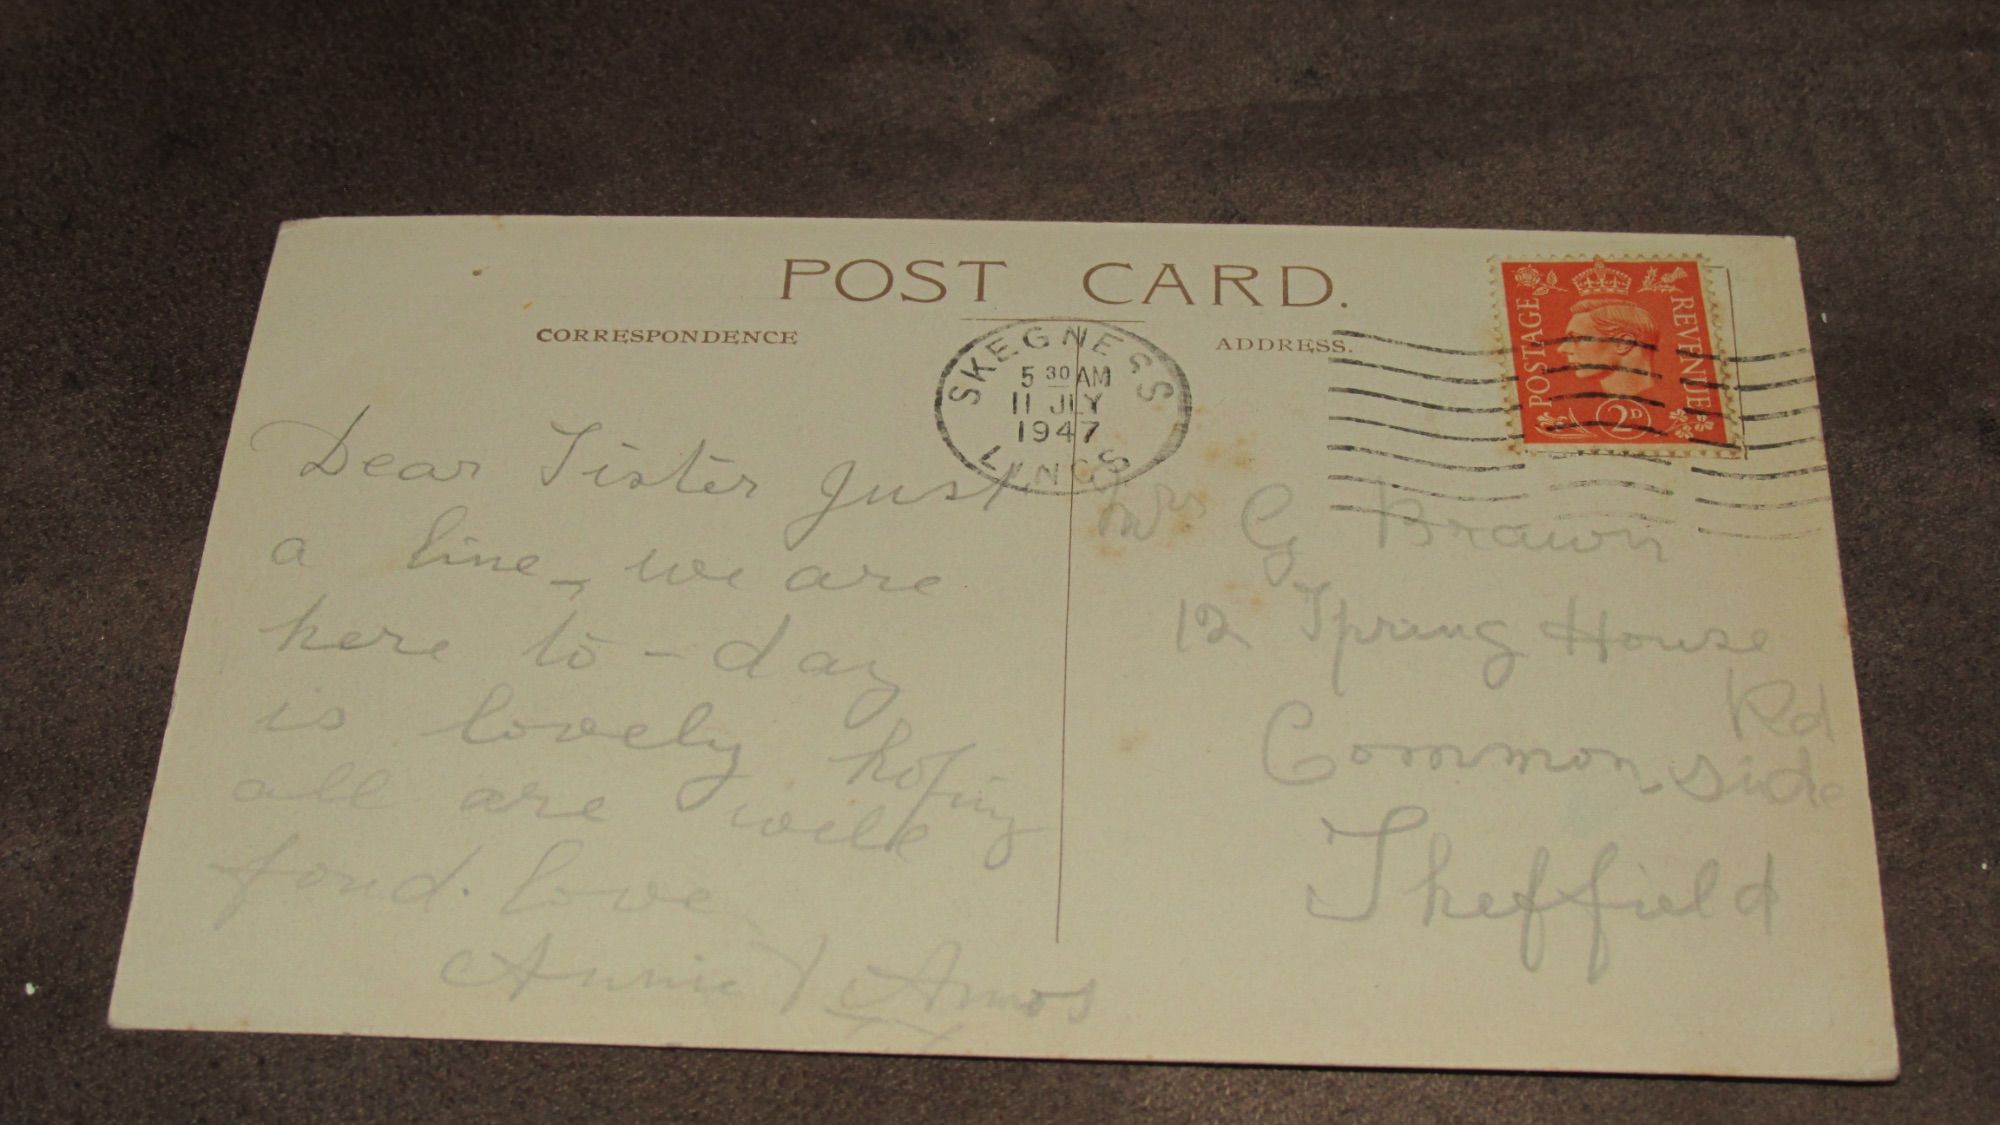 POST CARD.
CORRESPONDENCE
ADDRESS.
POSTAGE
REVENUE
2D
SKEGNESS
5 30 AM
11 JLY
1947
LINCS
Dear Sister Just
a line, we are
here to-day
is lovely hoping
all are well
fond. love
Annie & Amos
Mrs G Brawn
12 Spring House
Rd
Common side
Sheffield